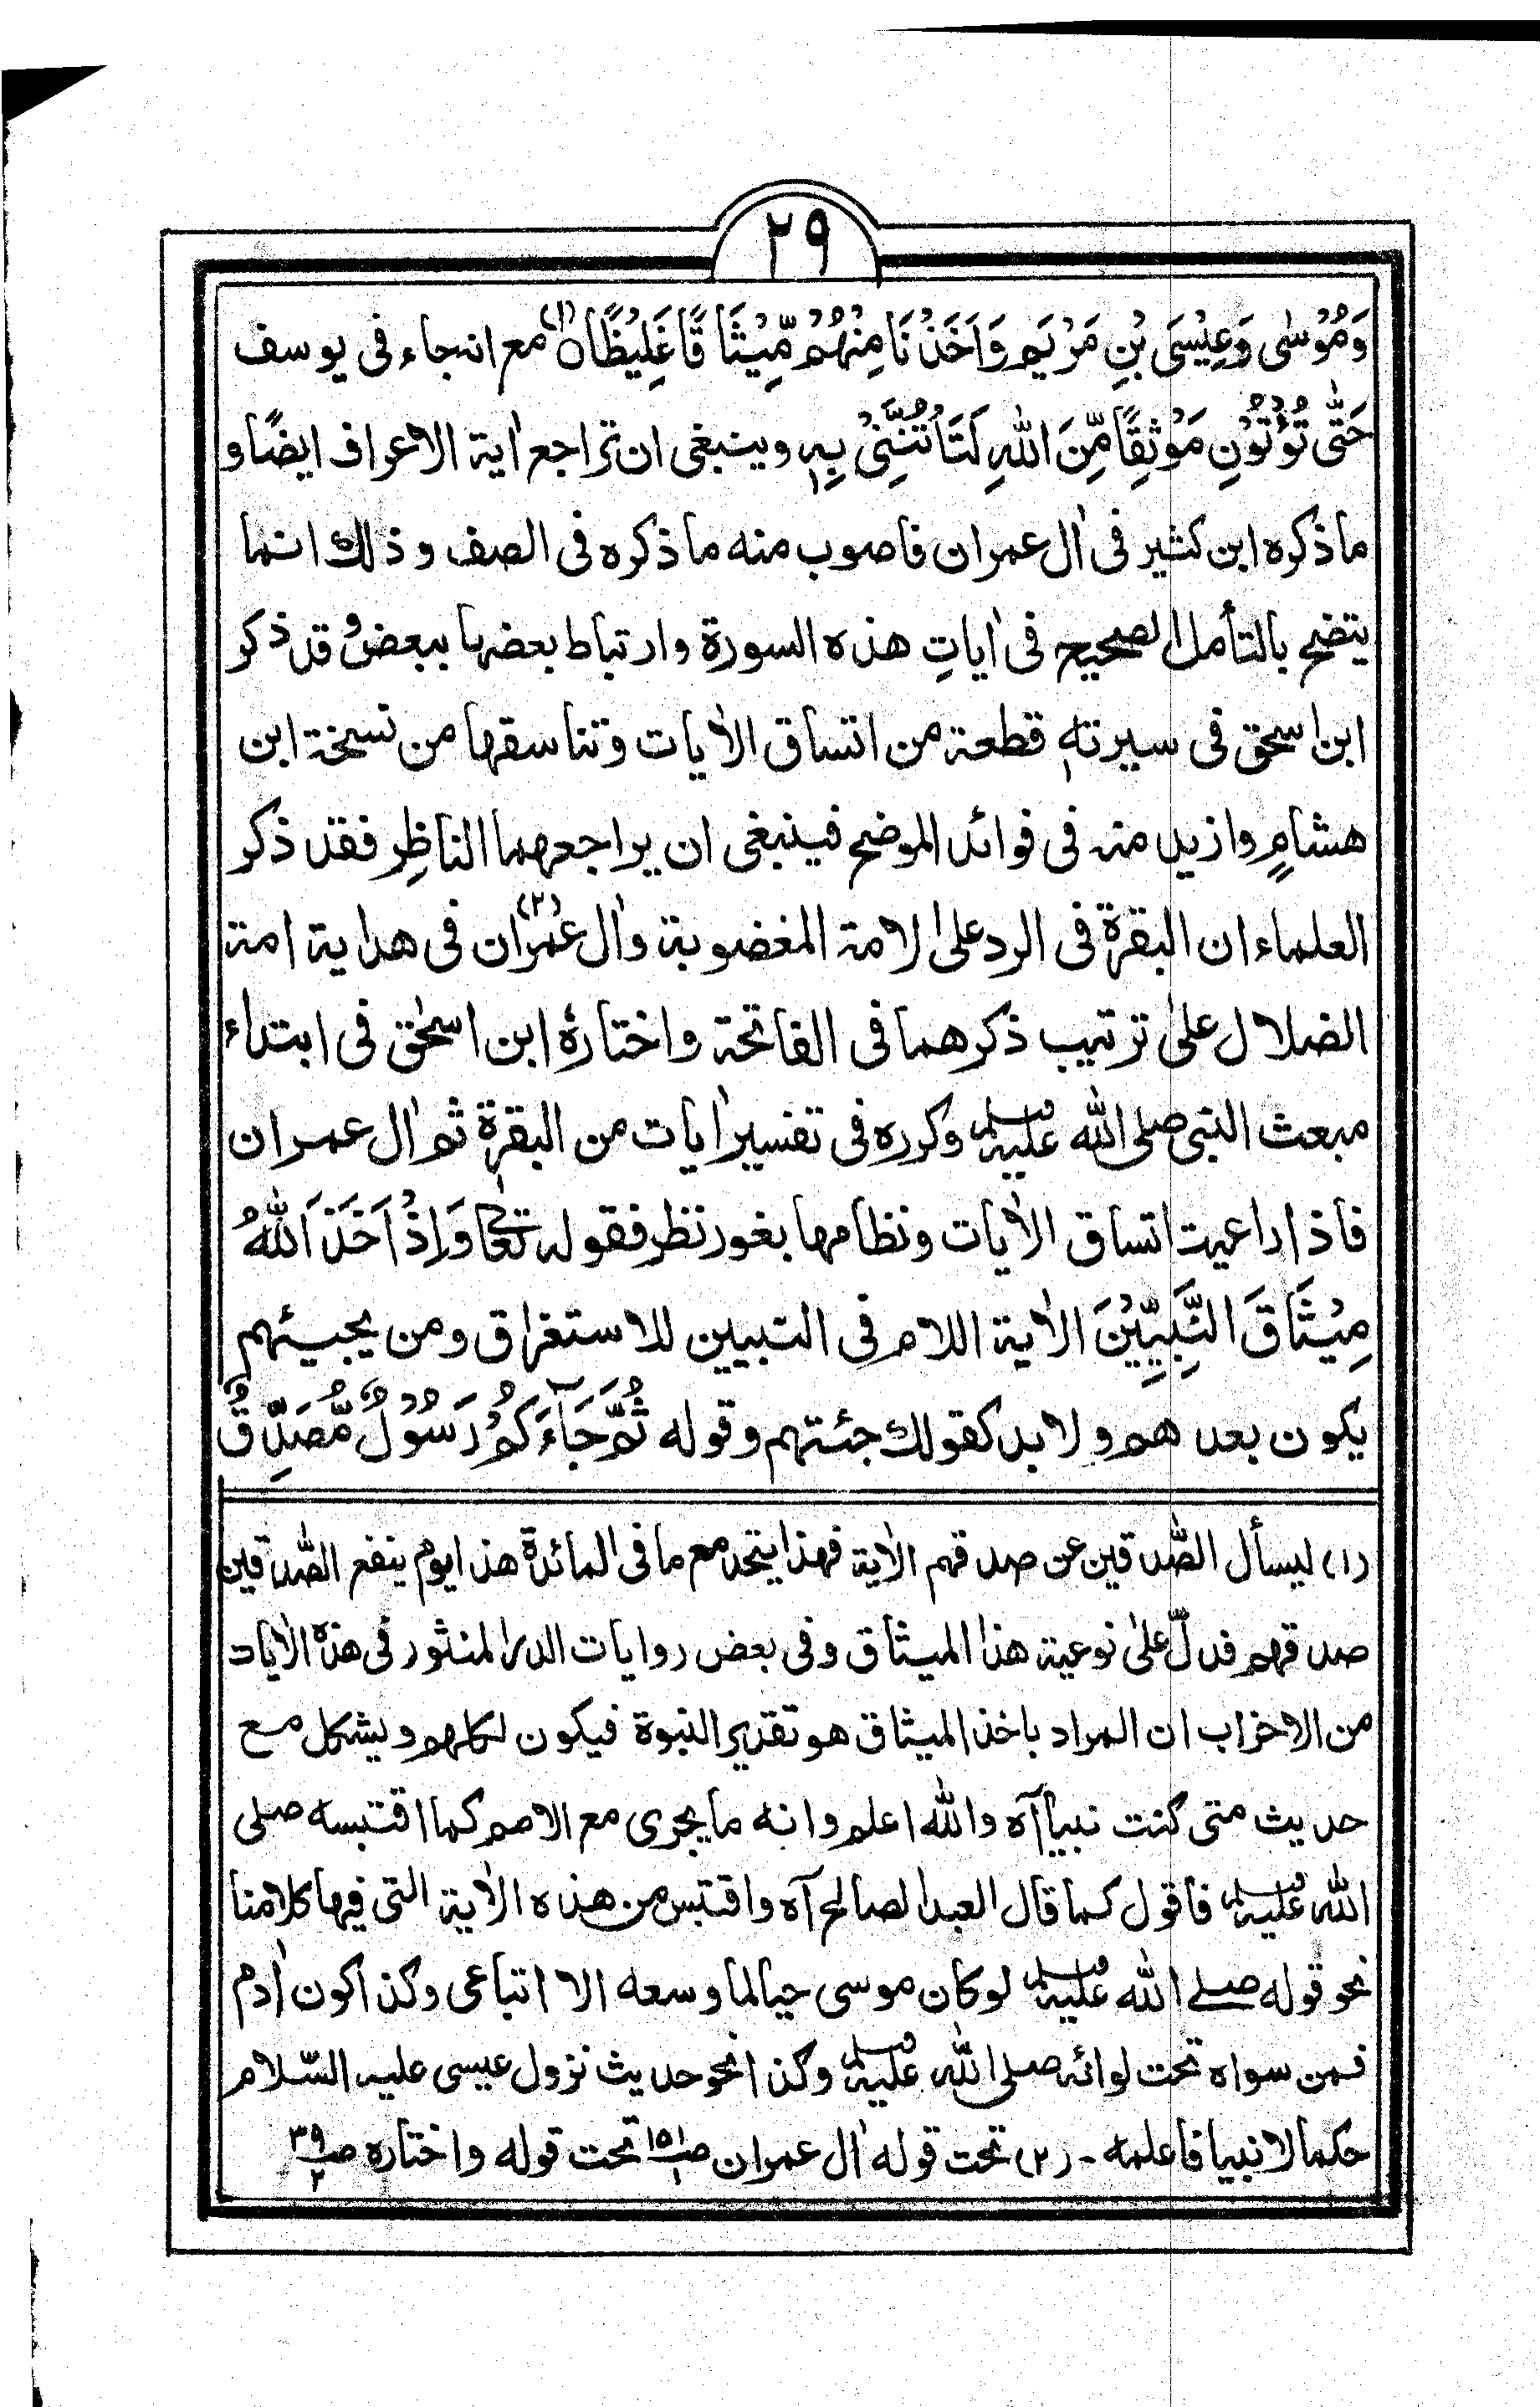 ٢٩
وَمُوْسٰى وَعِيْسَى بْنِ مَرْيَمَ وَاَخَذْنَا مِنْهُمْ مِّيْثَا قًا غَلِيْظًا۝(١) مع انه جاء فى يوسف
حَتّٰى تُؤْتُوْنِ مَوْثِقًا مِّنَ اللهِ لَتَأْتُنَّنِىْ بِهٖ وينبغى ان تراجع اٰية الاعراف ايضًا و
ما ذكره ابن كثير فى اٰل عمران فاصوب منه ما ذكره فى الصف و ذلك انما
يتضح بالتأمل الصحيح فى اٰياتِ هذه السورة وارتباط بعضها ببعض و قد ذكر
ابن اسحق فى سيرته قطعة من اتساق الاٰيات وتناسقها من نسخة ابن
هشامٍ وازيد منه فى فوائد الموضح فينبغى ان يراجعهما الناظِر فقد ذكر
العلماء ان البقرة فى الرد على الامة المغضوبة واٰل عمران(٢) فى هداية امة
الضلال علىٰ ترتيب ذكرهما فى الفاتحة واختارهٗ ابن اسحٰق فى ابتداء
مبعث النبى صلى الله عليه وسلم وكرره فى تفسير اٰيات من البقرة ثم اٰل عمران
فاذا راعيت اتساق الاٰيات ونظامها بغور نظر فقوله تعالى وَاِذْ اَخَذَ اللهُ
مِيْثَاقَ النَّبِيّٖيْنَ الاٰية اللام فى النبيين للاستغراق ومن يجيئهم
يكون بعد هم و لا بد كقولك جئتهم وقوله ثُمَّ جَآءَكُمْ رَسُوْلٌ مُّصَدِّقٌ
(١) ليسأل الصّٰدقين عن صدقهم الاٰية فهذا يتحد مع ما فى المائدة هذا يوم ينفع الصّٰدقين
صدقهم فدلّ علىٰ نوعية هذا الميثاق وفى بعض روايات الدر المنثور فى هذه الاٰيات
من الاحزاب ان المراد باخذ الميثاق هو تقدير النبوة فيكون لكلهم ويشكل مع
حديث متى كنت نبيا آه والله اعلم وانه ما يجرى مع الامم كما اقتبسه صلى
الله عليه وسلم فاقول كما قال العبد الصالح آه واقتبس من هذه الاٰية التى فيها كلامنا
نحو قوله صلى الله عليه وسلم لو كان موسى حيا لما وسعه الا اتباعى وكذا كون اٰدم
فمن سواه تحت لوائه صلى الله عليه وسلم وكذا نحو حديث نزول عيسى عليه السّلام
حكما لا نبيا فاعلمه - (٢) تحت قوله اٰل عمران صـ١٥١/١ تحت قوله واختاره صـ٣٩/٢